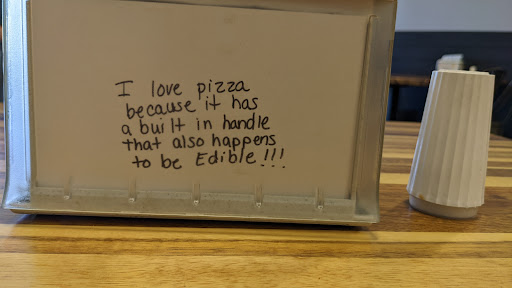 I love pizza
because it has
a built in handle
that also happens
to be Edible!!!